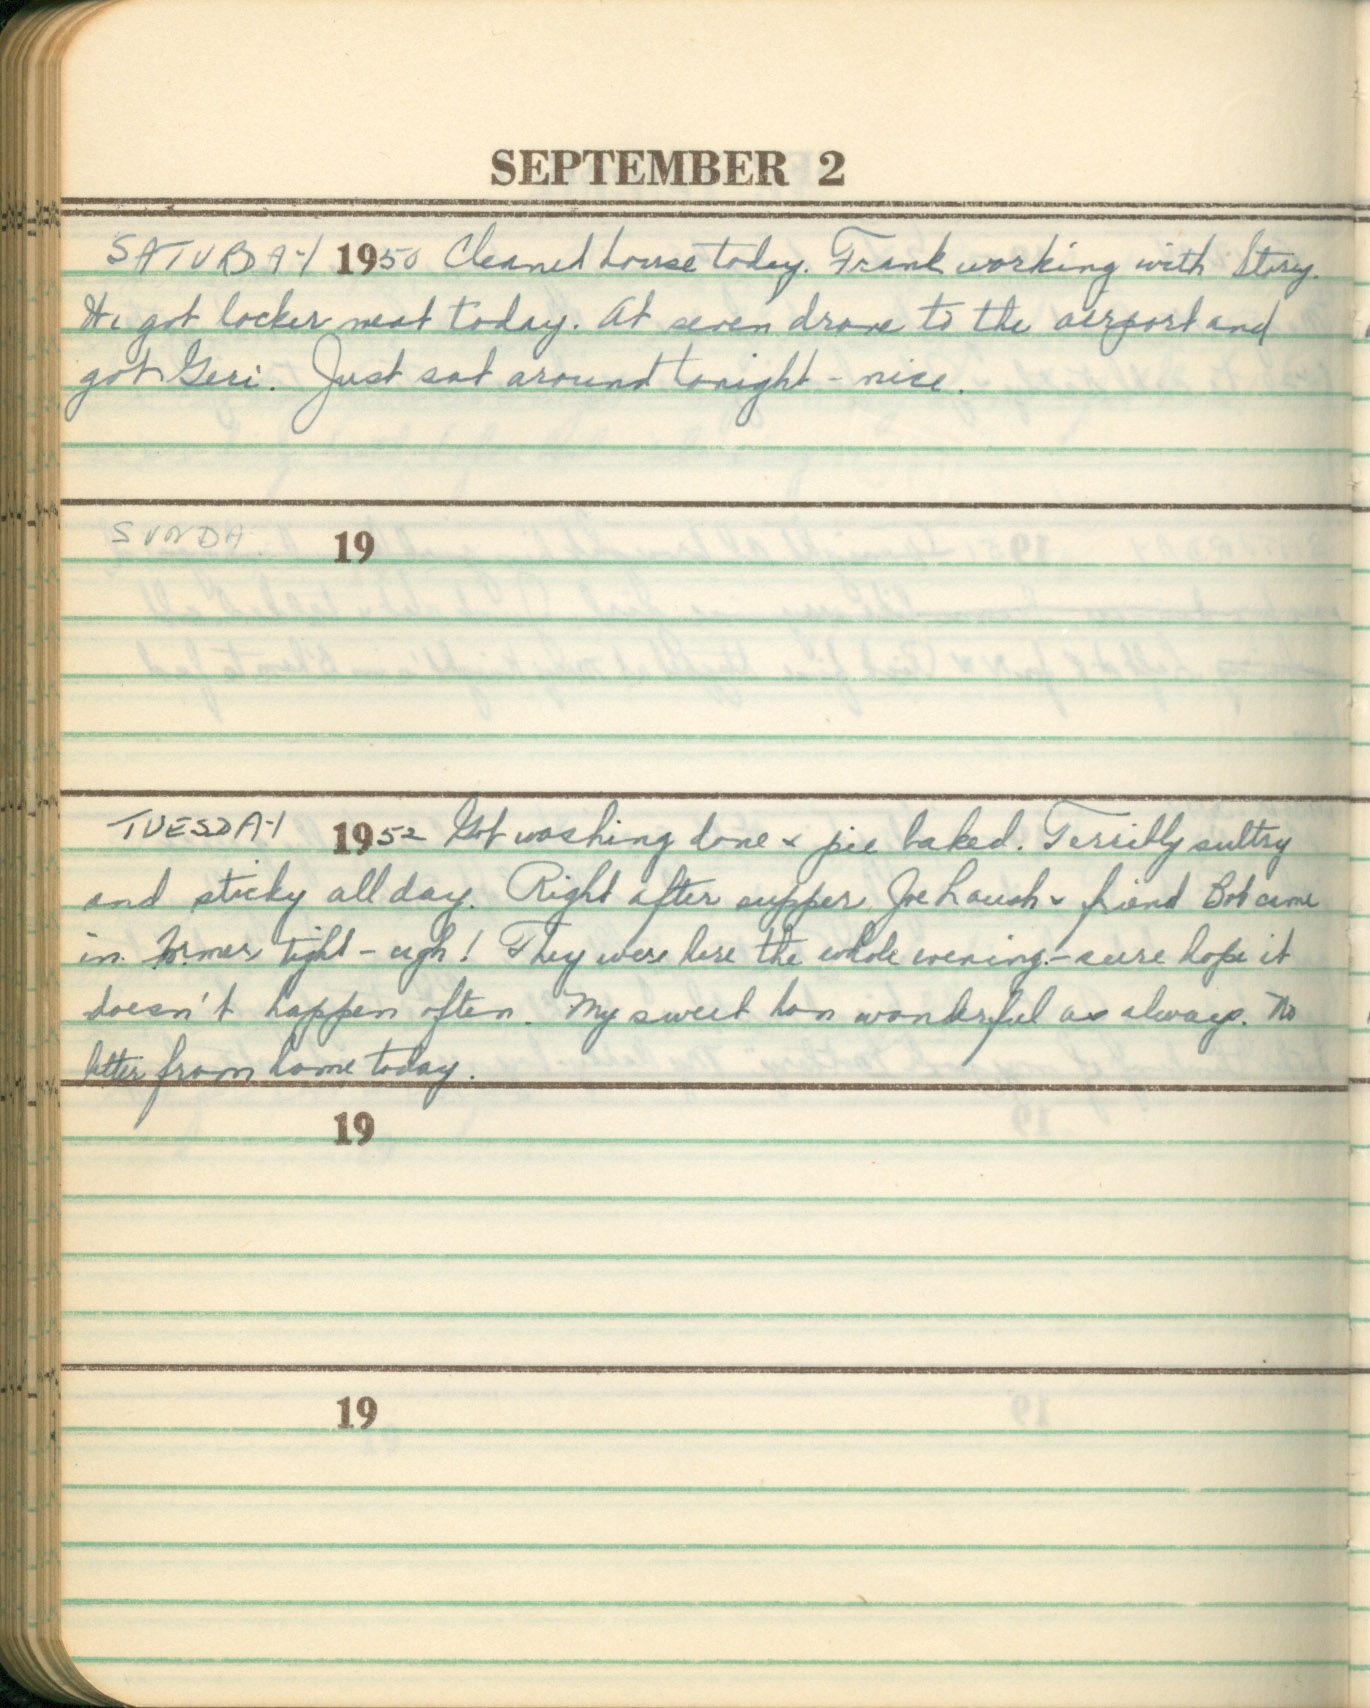 SEPTEMBER 2
SATURDAY 1950 Cleaned house today. Frank working with Story.
He got locker neat today. At seven drove to the airport and
got Geri. Just sat around tonight - nice.
SUNDA 19
TUESDAY 1952 Got washing done & pie baked. Terribly sultry
and sticky all day. Right after supper Joe & friend Bob came
in. Former tight - ugh! They were here the whole evening - sure hope it
doesn't happen often. My sweet hon wonderful as always. No
letter from home today.
19
19